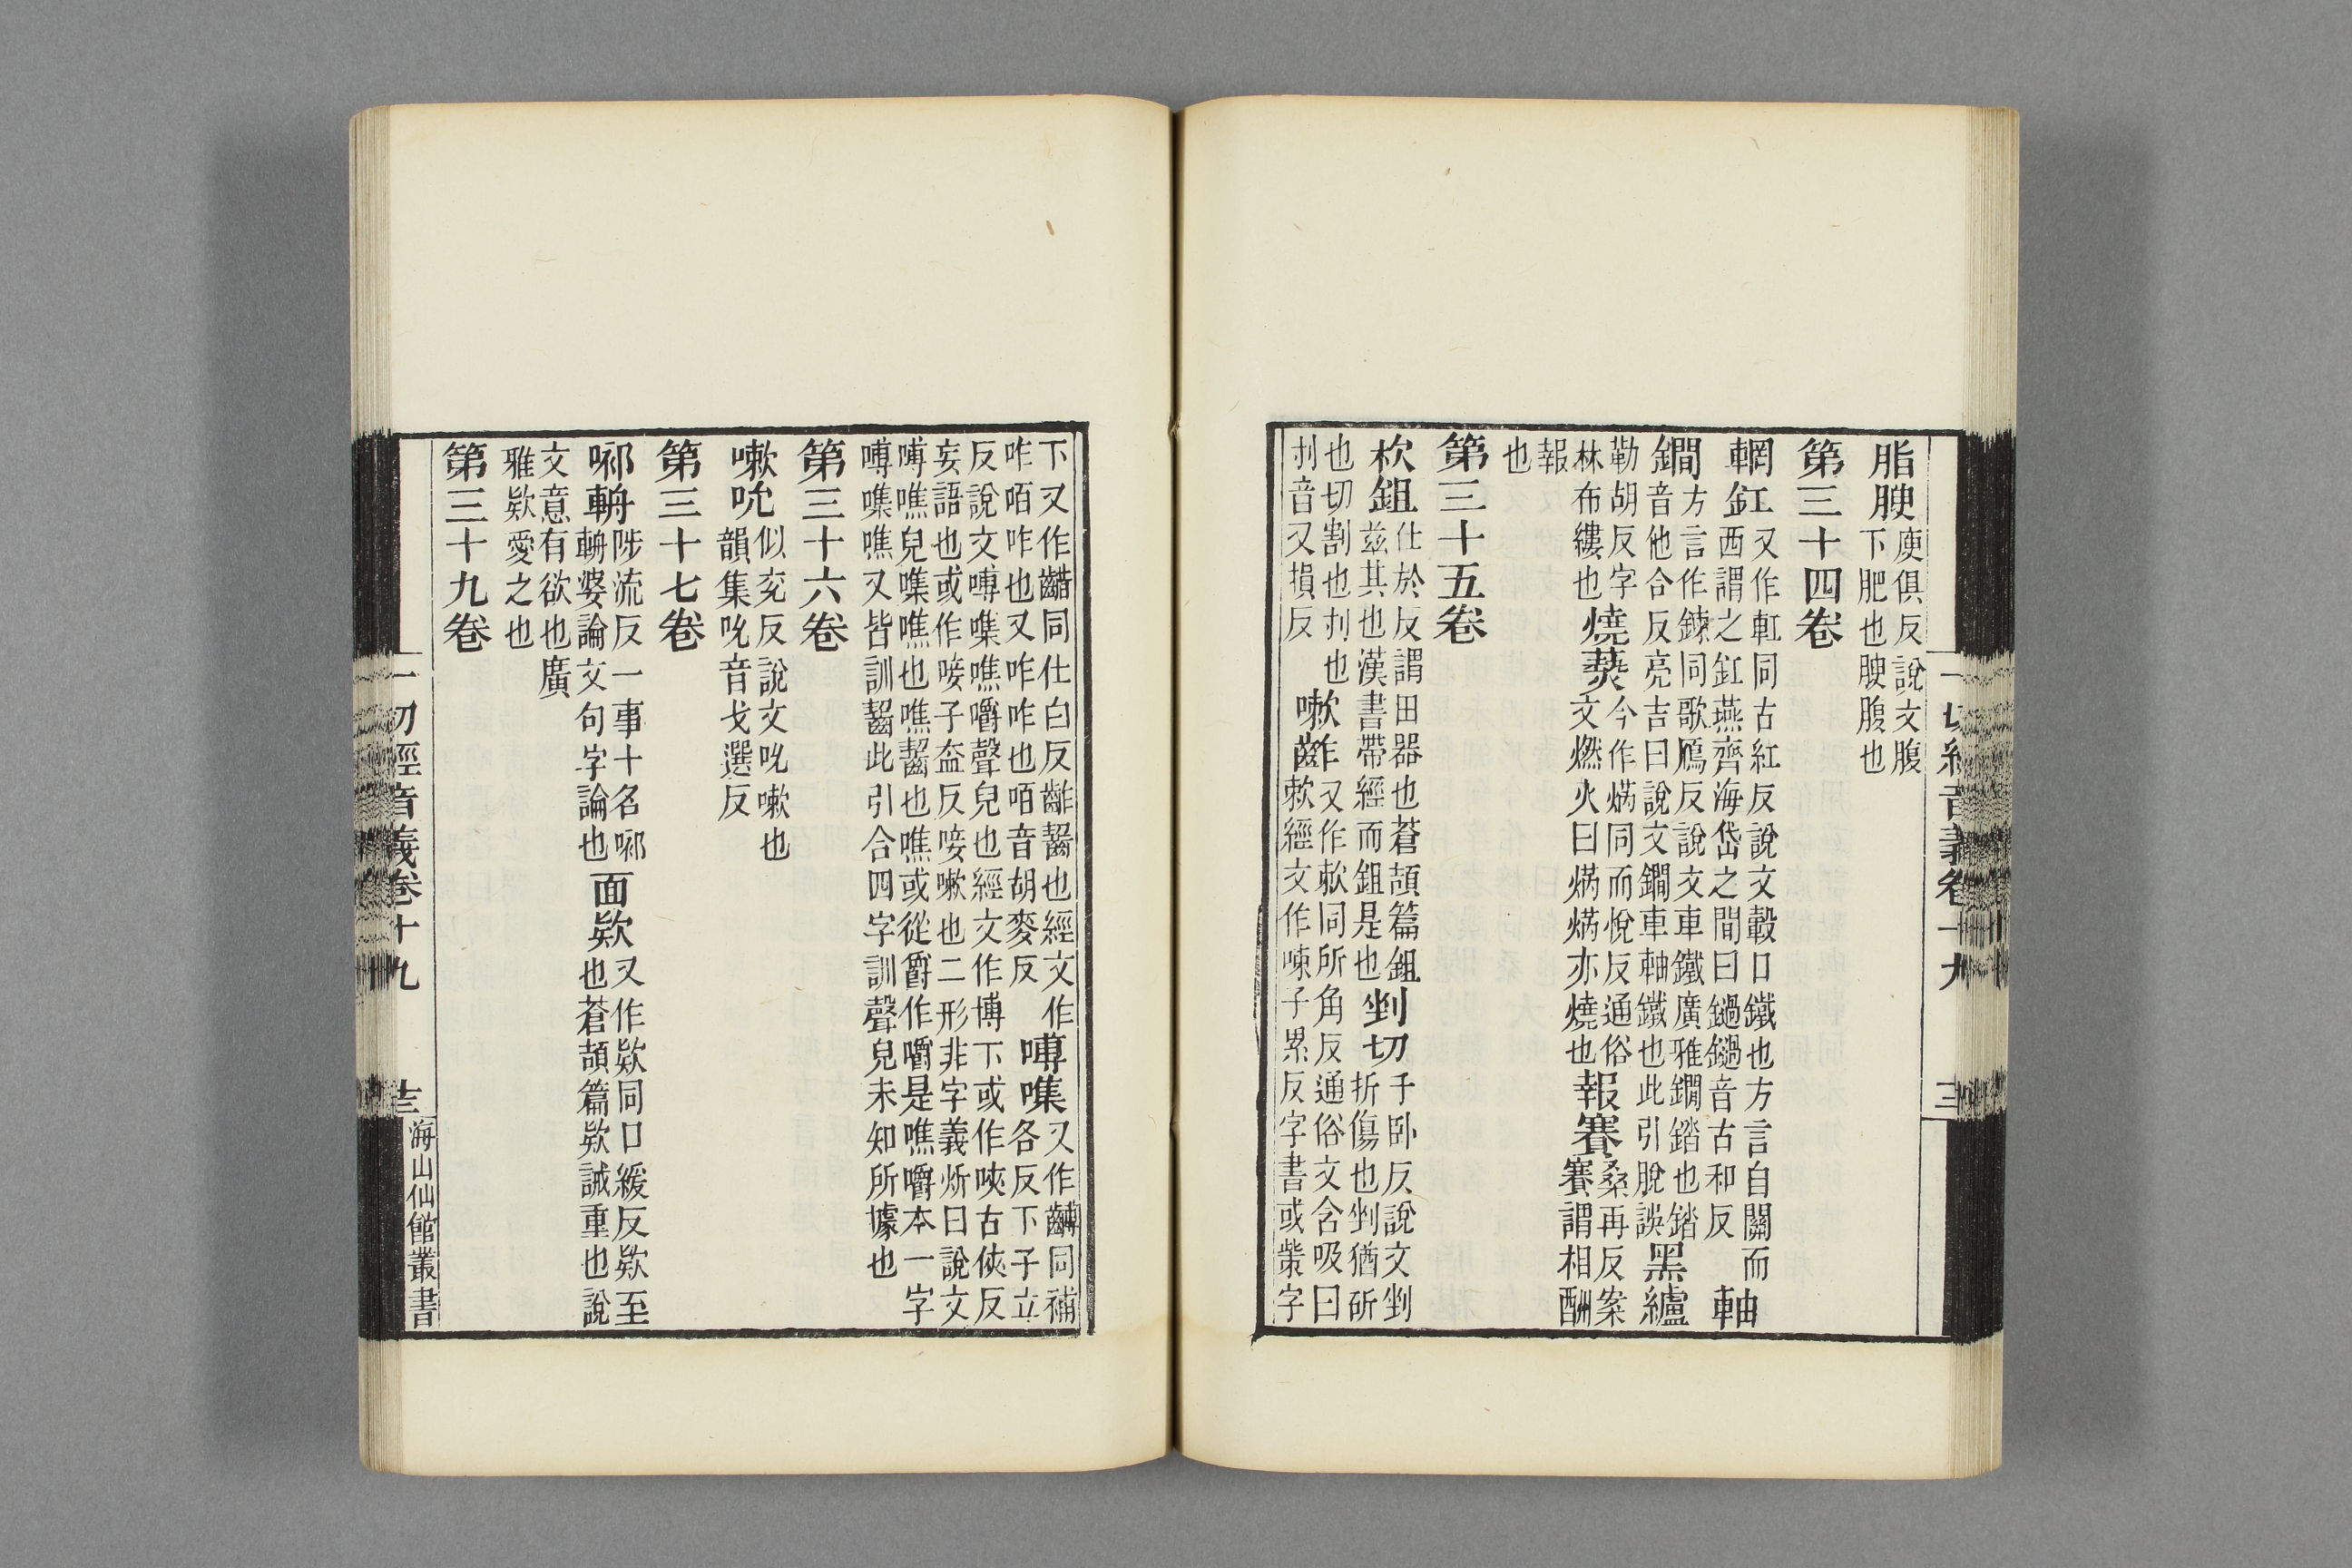 脂腴庾俱反說文腹
下肥也腴腹也
第三十四卷
輞釭又作軖同古紅反說文轂口鐵也方言自關而
西謂之釭燕齊海岱之間曰鐹鐹音古和反 軸
鐗方言作鍊同歌鴈反說文車鐵廣雅鐗錔也錔
音他合反亮吉曰說文鐗車軸鐵也此引脫誤 黑纑
勒胡反字
林布縷也 燒爇今作焫同而悅反通俗
文燃火曰焫焫亦燒也 報賽桑再反案
賽謂相酬
報
也
第三十五卷
杴鉏仕於反謂田器也蒼頡篇鉏
茲其也漢書帶經而鉏是也 剉切子卧反說文剉
折傷也剉猶斫
也切割也刌也 嗽齚又作欶同所角反通俗文含吸曰
刌音又損反 欶經文作㖦子累反字書或紫字
下又作齰同仕白反齚齧也經文作
咋㗑咋也又咋咋也㗑音胡麥反 嚩噍又作䶈同補
各反下子立
反說文嚩噍噍嚼聲皃也經文作博下或作唊古俠反
妄語也或作唼子盍反唼嗽也二形非字義炘曰說文
嚩噍皃噍噍也噍齧也噍或從爵作嚼是噍嚼本一字
嚩噍噍又皆訓齧此引合四字訓聲皃未知所據也
第三十六卷
嗽吮似兖反說文吮嗽也
韻集吮音弋選反
第三十七卷
㖿輈陟流反一事十名㖿
輈婆論文句字論也 面欵又作欵同口緩反欵至
也蒼頡篇欵誠重也說
文意有欲也廣
雅欵愛之也
第三十九卷
一切經音義卷十九
海山仙館叢書